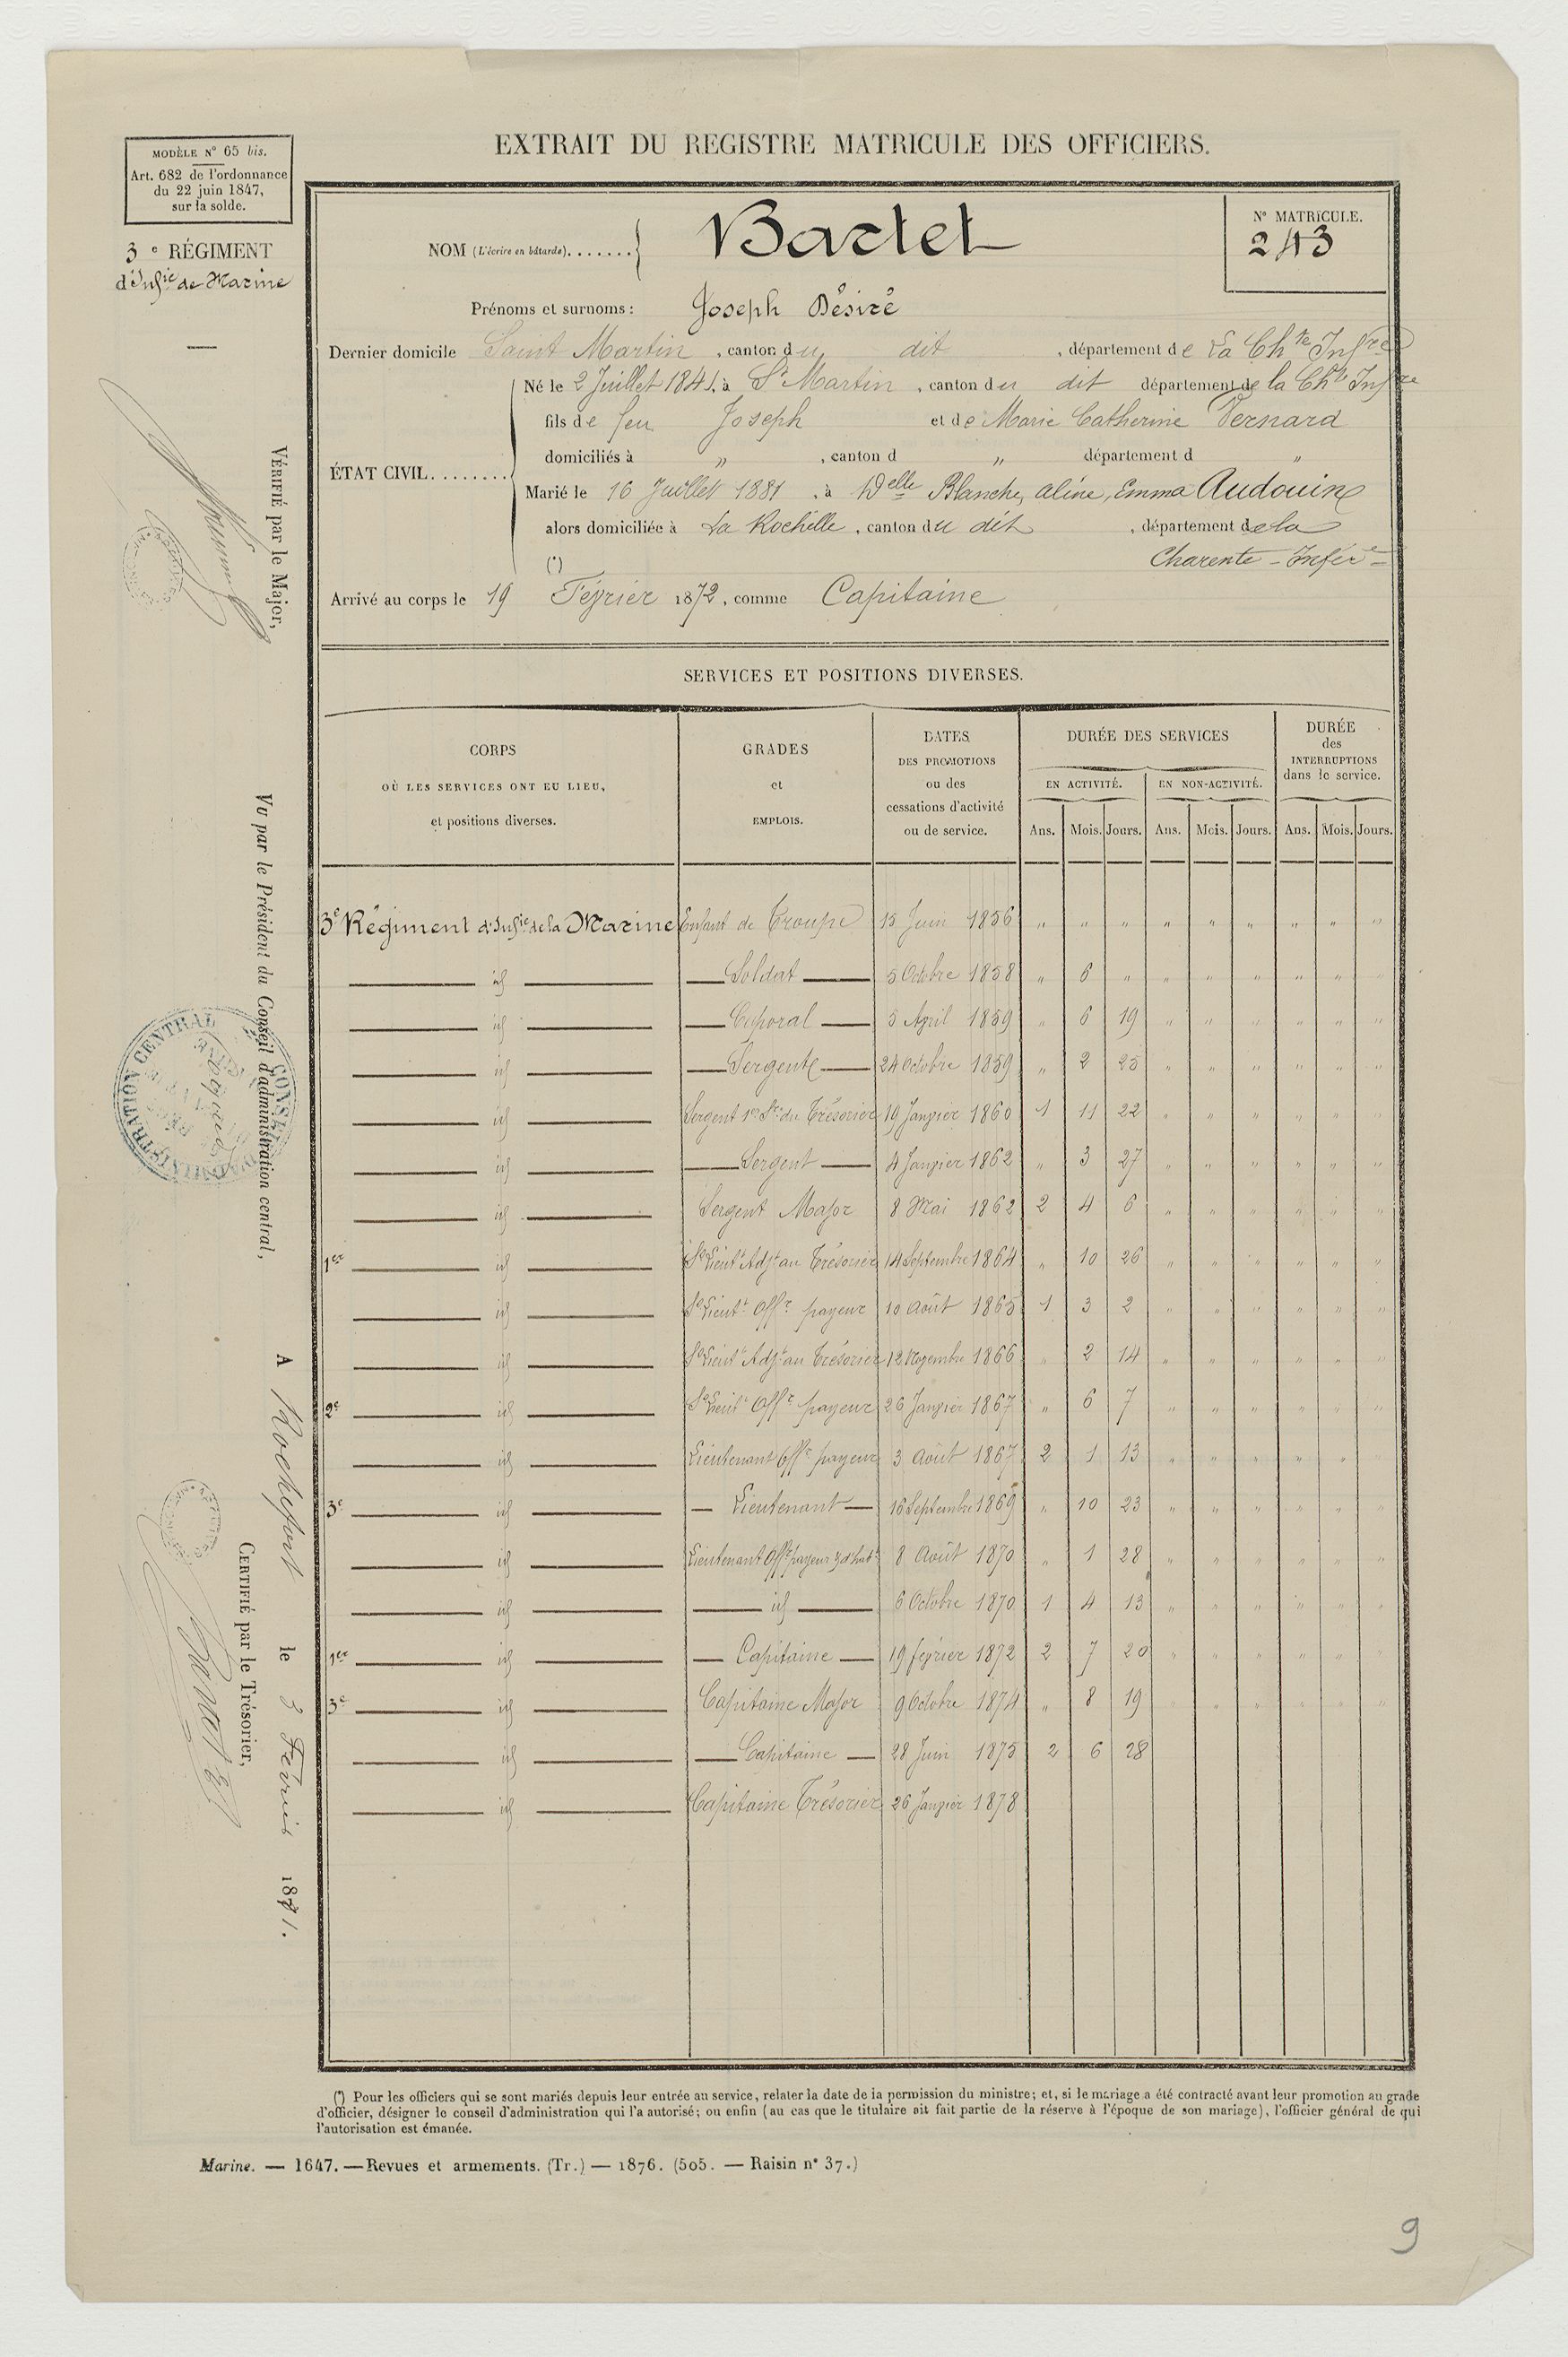 EXTRAIT DU REGISTRE MATRICULE DES OFFICIERS.
MODÈLE N° 65 bis.
Art. 682 de l'ordonnance
du 22 juin 1847,
sur la solde.
3e RÉGIMENT
d'Infie de Marine
NOM (L'écrire en bâtarde)....... Bartet
N° MATRICULE.
243
Prénoms et surnoms : Joseph Désiré
Dernier domicile Saint Martin, canton du dit, département de La Chte Infre
Né le 2 Juillet 1841, à St Martin, canton du dit département de la Chte Infre
fils de feu Joseph et de Marie Catherine Vernard
domiciliés à ", canton d " département d "
ÉTAT CIVIL........
Marié le 16 Juillet 1881, à Delle Blanche, Aline, Emma Audouin
alors domiciliée à La Rochelle, canton du dit, département de la
(*) Charente-Inférre
Arrivé au corps le 19 Février 1872, comme Capitaine
SERVICES ET POSITIONS DIVERSES.
CORPS
OÙ LES SERVICES ONT EU LIEU,
et positions diverses.
GRADES
et
EMPLOIS.
DATES
DES PROMOTIONS
ou des
cessations d'activité
ou de service.
DURÉE DES SERVICES
EN ACTIVITÉ. EN NON-ACTIVITÉ.
DURÉE
des
INTERRUPTIONS
dans le service.
Ans. Mois. Jours. Ans. Mois. Jours. Ans. Mois. Jours.
3e Régiment d'Infie de la Marine Enfant de Troupe 15 Juin 1856 " " " " " " " " "
id Soldat 5 Octobre 1858 " 6 " " " " " " "
id Caporal 5 April 1859 " 6 19 " " " " " "
id Sergent 24 Octobre 1859 " 2 25 " " " " " "
id Sergent 1er Sre du Trésorier 19 Janvier 1860 1 11 22 " " " " " "
id Sergent 4 Janvier 1862 " 3 27 " " " " " "
id Sergent Major 8 Mai 1862 2 4 6 " " " " " "
1er id Ss Lieutt Adjt au Trésorier 14 Septembre 1864 " 10 26 " " " " " "
id Ss Lieutt Offr payeur 10 Août 1865 1 3 2 " " " " " "
id Ss Lieutt Adjt au Trésorier 12 Novembre 1866 " 2 14 " " " " " "
2e id Ss Lieutt Offr payeur 26 Janvier 1867 " 6 7 " " " " " "
id Lieutenant Offr payeur 3 Août 1867 2 1 13 " " " " " "
3e id Lieutenant 16 Septembre 1869 " 10 23 " " " " " "
id Lieutenant Offr payeur 8 Août 1870 " 1 28 " " " " " "
id id 6 Octobre 1870 1 4 13 " " " " " "
1er id Capitaine 19 février 1872 2 7 20 " " " " " "
3e id Capitaine Major 9 Octobre 1874 " 8 19 " " " " "
id Capitaine 28 Juin 1875 2 6 28
id Capitaine Trésorier 26 Janvier 1878
(*) Pour les officiers qui se sont mariés depuis leur entrée au service, relater la date de la permission du ministre; et, si le mariage a été contracté avant leur promotion au grade
d'officier, désigner le conseil d'administration qui l'a autorisé; ou enfin (au cas que le titulaire ait fait partie de la réserve à l'époque de son mariage), l'officier général de qui
l'autorisation est émanée.
Marine. — 1647. — Revues et armements. (Tr.) — 1876. (505. — Raisin n° 37.)
9
VÉRIFIÉ par le Major,
Vu par le Président du Conseil d'administration central,
CONSEIL D'ADMINISTRATION CENTRAL
A Rochefort le 3 Février 1881.
CERTIFIÉ par le Trésorier,